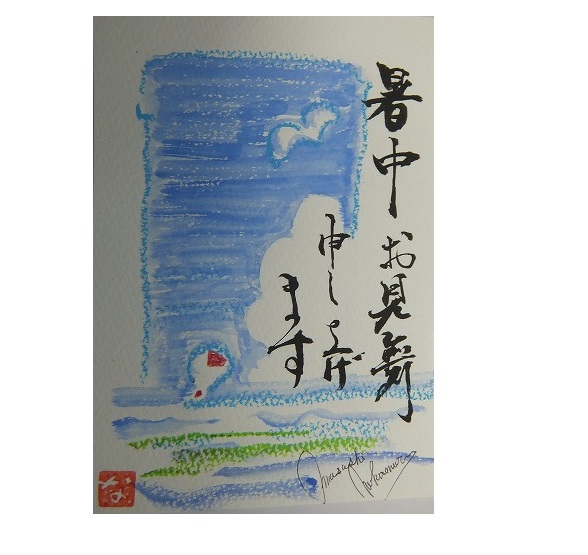 暑中お見舞
申し上げ
ます
な